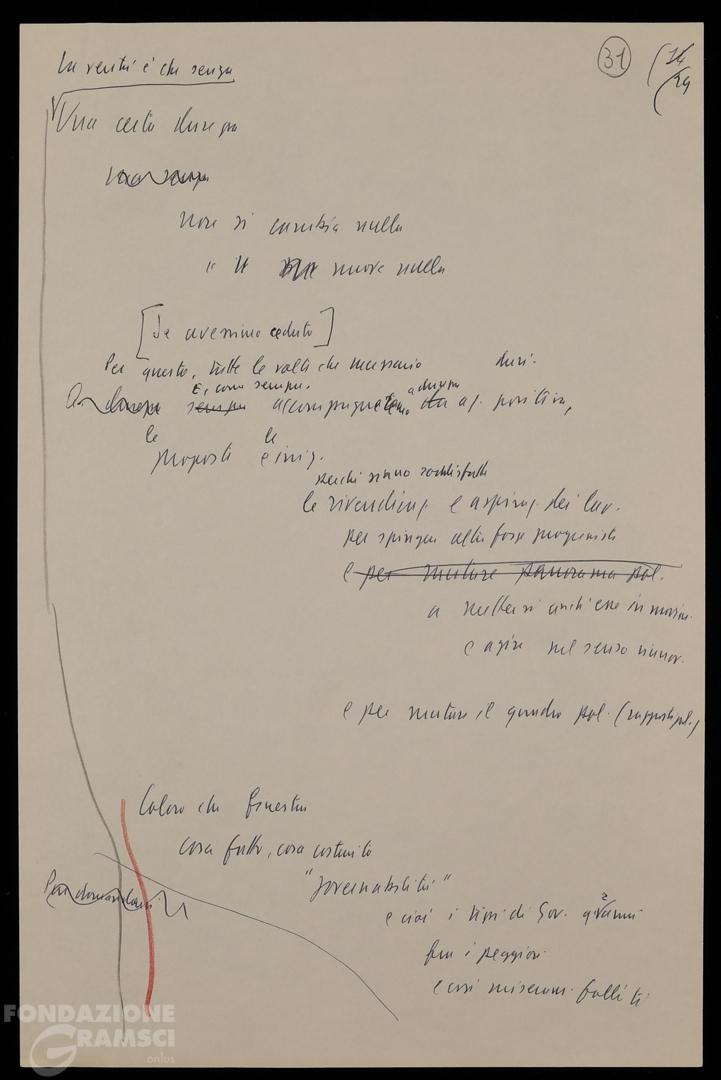 La verità è che senza
31
24
Una certa durezza
non si cambia nulla
" si muove nulla
[Se avessimo ceduto]
Per questo, tutte le volte che necessario duri.
E, come sempre. a durezza
accompagnato az. positiva,
le le
proposte e iniz.
perché siano soddisfatte
le rivendicaz. e aspiraz. dei lav.
per spingere altre forze progressiste
e per mutare panorama pol.
a mettersi anch'esse in movim.
e agire nel senso rinnov.
e per mutare il quadro pol. (rapporti pol.)
Coloro che
cosa fatto, cosa costruito
"governabilità"
e cioè i tipi di Gov.
fra i peggiori
e così miseram. falliti
FONDAZIONE
GRAMSCI
onlus